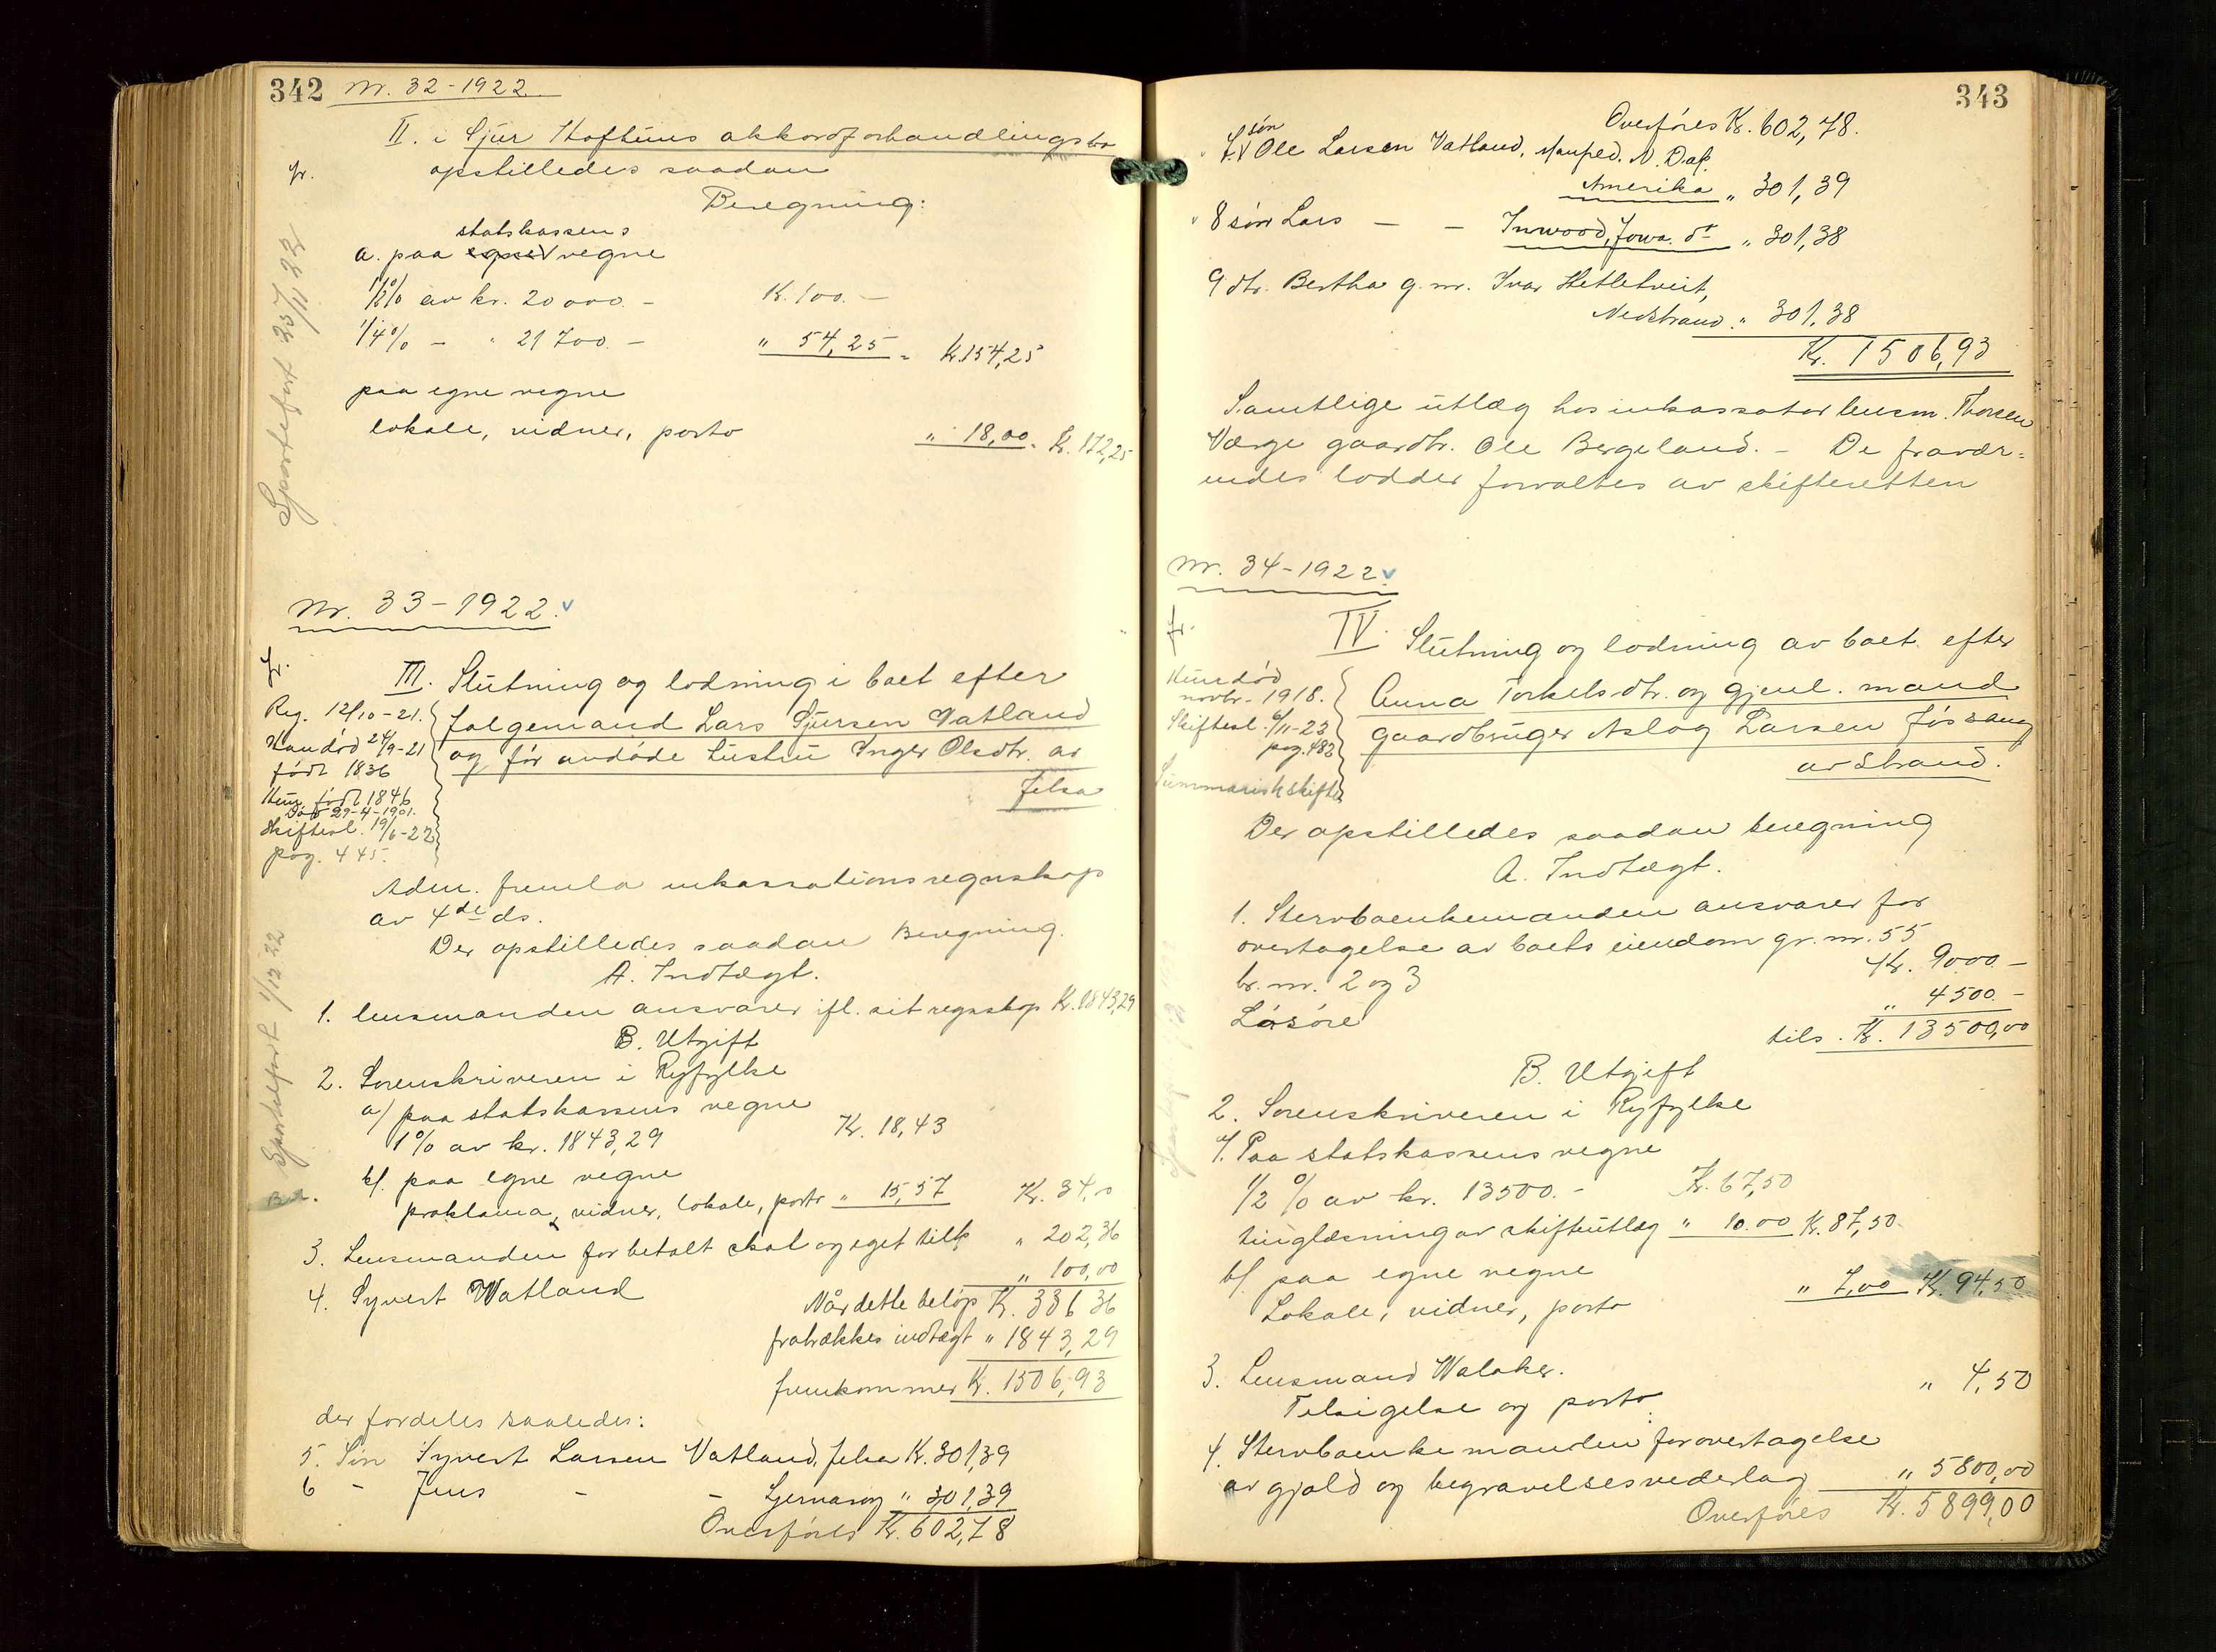 342 Nr. 32-1922.
II. i Sjur Hoftuns akkordforhandlingsbo
fr. opstilledes saadan
Beregning:
statskassens
a. paa egne vegne
1/2% av kr. 20000.- K. 100.-
1/4% - " 21700.- " 54,25 = Kr. 154,25
paa egne vegne
lokale, vidner, porto " 18,00 = Kr. 172,25
Sportelført 25/11 22
Nr. 33-1922. v
fr.
III. Slutning og lodning i boet efter
folgemand Lars Sjursen Vatland
og før avdøde hustru Inger Olsdtr. av
Jelsa
Reg. 12/10-21.
Han død 24/9-21
født 1836
Hun født 1846
Død 29-4-1901.
Skiftesl. 19/6-22
pag. 445.
Adm. fremla inkassationsregnskap
av 4de ds.
Der opstilledes saadan Beregning.
A. Indtægt.
1. lensmanden ansvarer ifl. sit regnskap Kr. 1843,29
B. Utgift
2. Sorenskriveren i Ryfylke
a/ paa statskassens vegne
1% av kr. 1843,29 Kr. 18,43
b/. paa egne vegne
proklama, vidner, lokale, porto " 15,57 Kr. 34,0
3. Lensmanden for betalt skat og eget tilk " 202,36
4. Syvert Vatland " 100,00
Når dette beløp K. 336 36
fratrækkes indtægt " 1843,29
fremkommer K. 1506,93
Sportelført 1/12 22
der fordeles saaledes:
5. Søn Syvert Larsen Vatland, Jelsa K. 301,39
6 - Jens - - Sjernarøy " 301,39
Overføres K. 602,78
343
Overføres K. 602,78.
søn
7. v Ole Larsen Vatland, Manfred. N. Dak.
Amerika " 301,39
8 søn Lars - - Inwood, Jowa. do " 301,38
9 dtr. Bertha g. m. Ivar Hetletveit,
Nedstrand " 301,38
Kr. 1506,93
Samtlige utlæg hos inkassator lensm. Thorsen
Værge gaardbr. Ole Bergeland. - De fravær=
endes lodder forvaltes av skifteretten
Nr. 34-1922 v
fr.
IV. Slutning og lodning av boet efter
Anna Torkelsdtr. og gjenl. mand
gaardbruger Aslag Larsen Fossang
av Strand.
Hun død
novbr. 1918.
Skiftesl. 6/11-23
pag. 482
Summarisk skifte
Der opstilledes saadan beregning
A. Indtægt.
1. Stervboenkemanden ansvarer for
overtagelse av boets eiendom gr. nr. 55
br. nr. 2 og 3 Kr. 9000 -
Løsøre " 4500.-
tils. K. 13500,00
B. Utgift
2. Sorenskriveren i Ryfylke
1. Paa statskassens vegne
1/2 % av kr. 13500.- K. 67,50
tinglæsning av skifteutlæg " 10.00 K. 87,50
b/. paa egne vegne
Lokale, vidner, porto " 7,00 K. 94,50
3. Lensmand Walaker.
Tilsigelse og porto " 4,50
4. Stervboenkemanden for overtagelse
av gjæld og begravelsesvederlag " 5800,00
Overføres Kr. 5899,00